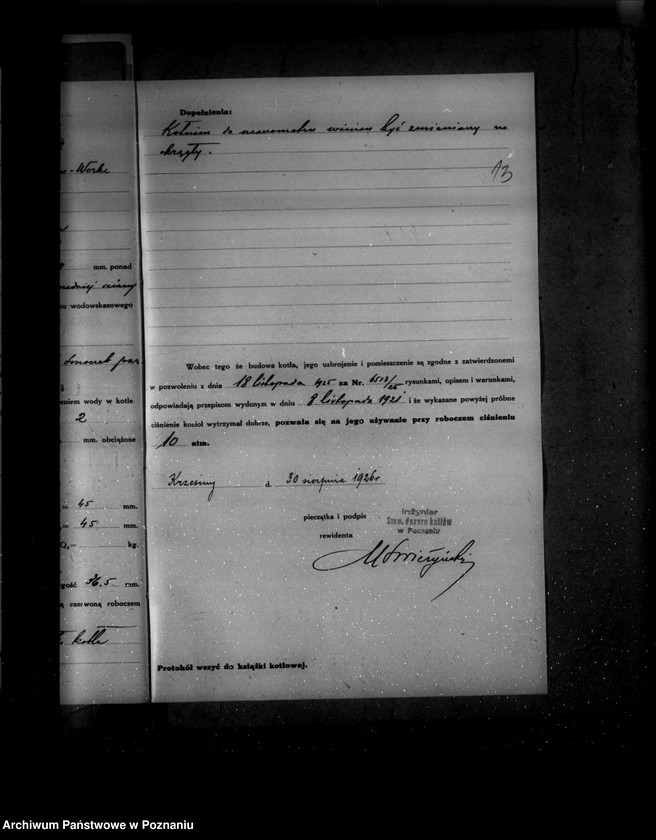 - Werke
mm. ponad
ściany
wodowskazowego
eniem wody w kotle
2
mm. obciążone
= 45 mm.
= 45 mm.
Q.= kg.
gość 36.5 mm.
czerwoną roboczem
kotła
Dopełnienia:
Kołnierz do manometru winien być zmieniony na
okrągły.
13
Wobec tego że budowa kotła, jego uzbrojenie i pomieszczenie są zgodne z zatwierdzonemi
w pozwoleniu z dnia 18 listopada 1925 za Nr. 6513/25 rysunkami, opisem i warunkami,
odpowiadają przepisom wydanym w dniu 8 listopada 1921 i że wykazane powyżej próbne
ciśnienie kocioł wytrzymał dobrze, pozwala się na jego używanie przy roboczem ciśnieniu
10 atm.
Krzesiny d. 30 sierpnia 1926 r
pieczątka i podpis
rewidenta
Inżynier
Stow. dozoru kotłów
w Poznaniu
Protokół wszyć do książki kotłowej.
Archiwum Państwowe w Poznaniu